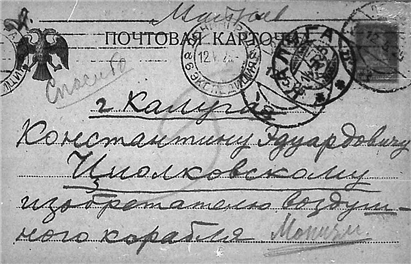 ПОЧТОВАЯ КАРТОЧКА
Спасибо
КАЛУГА
г Калуга
Константину Эдуардовичу
Циолковскому
изобретателю воздуш-
ного корабля